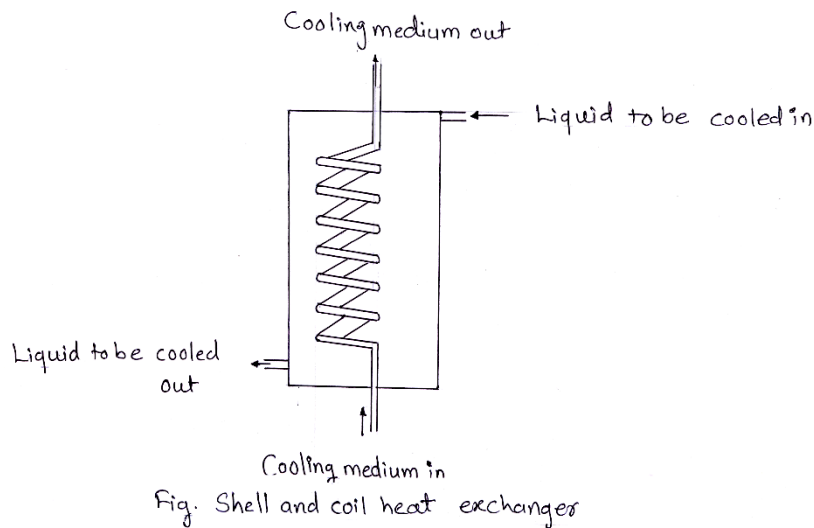 Cooling medium out
Liquid to be cooled in
Liquid to be cooled
out
Cooling medium in
Fig. Shell and coil heat exchanger